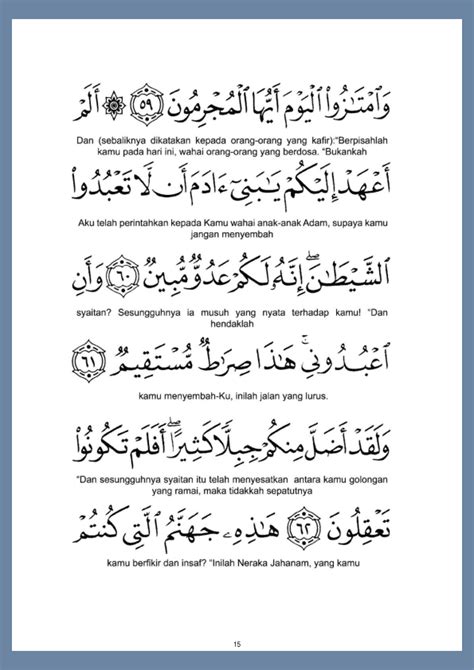 وَٱمْتَـٰزُوا۟ ٱلْيَوْمَ أَيُّهَا ٱلْمُجْرِمُونَ ٥٩ ۞ أَلَمْ
Dan (sebaliknya dikatakan kepada orang-orang yang kafir):"Berpisahlah
kamu pada hari ini, wahai orang-orang yang berdosa. "Bukankah
أَعْهَدْ إِلَيْكُمْ يَـٰبَنِىٓ ءَادَمَ أَن لَّا تَعْبُدُوا۟
Aku telah perintahkan kepada Kamu wahai anak-anak Adam, supaya kamu
jangan menyembah
ٱلشَّيْطَـٰنَ ۖ إِنَّهُۥ لَكُمْ عَدُوٌّ مُّبِينٌ ٦٠ وَأَنِ
syaitan? Sesungguhnya ia musuh yang nyata terhadap kamu! "Dan
hendaklah
ٱعْبُدُونِى ۚ هَـٰذَا صِرَٰطٌ مُّسْتَقِيمٌ ٦١
kamu menyembah-Ku, inilah jalan yang lurus.
وَلَقَدْ أَضَلَّ مِنكُمْ جِبِلًّا كَثِيرًا ۖ أَفَلَمْ تَكُونُوا۟
"Dan sesungguhnya syaitan itu telah menyesatkan antara kamu golongan
yang ramai, maka tidakkah sepatutnya
تَعْقِلُونَ ٦٢ هَـٰذِهِۦ جَهَنَّمُ ٱلَّتِى كُنتُمْ
kamu berfikir dan insaf? "Inilah Neraka Jahanam, yang kamu
15